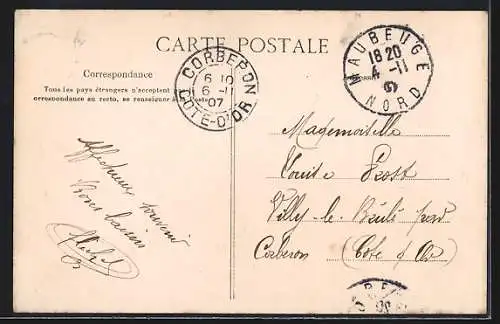 CARTE POSTALE
Correspondance
Tous les pays étrangers n'acceptent pas la
correspondance au recto, se renseigner à la Poste
CORBERON
6 10
6 -11
07
CÔTE-D'OR
MAUBEUGE
18 20
4 -11
NORD
Affectueux souvenir
Bons baisers
Mademoiselle
Louise Prost
Villy-le-Brûlé par
Corberon (Cote d'Or)